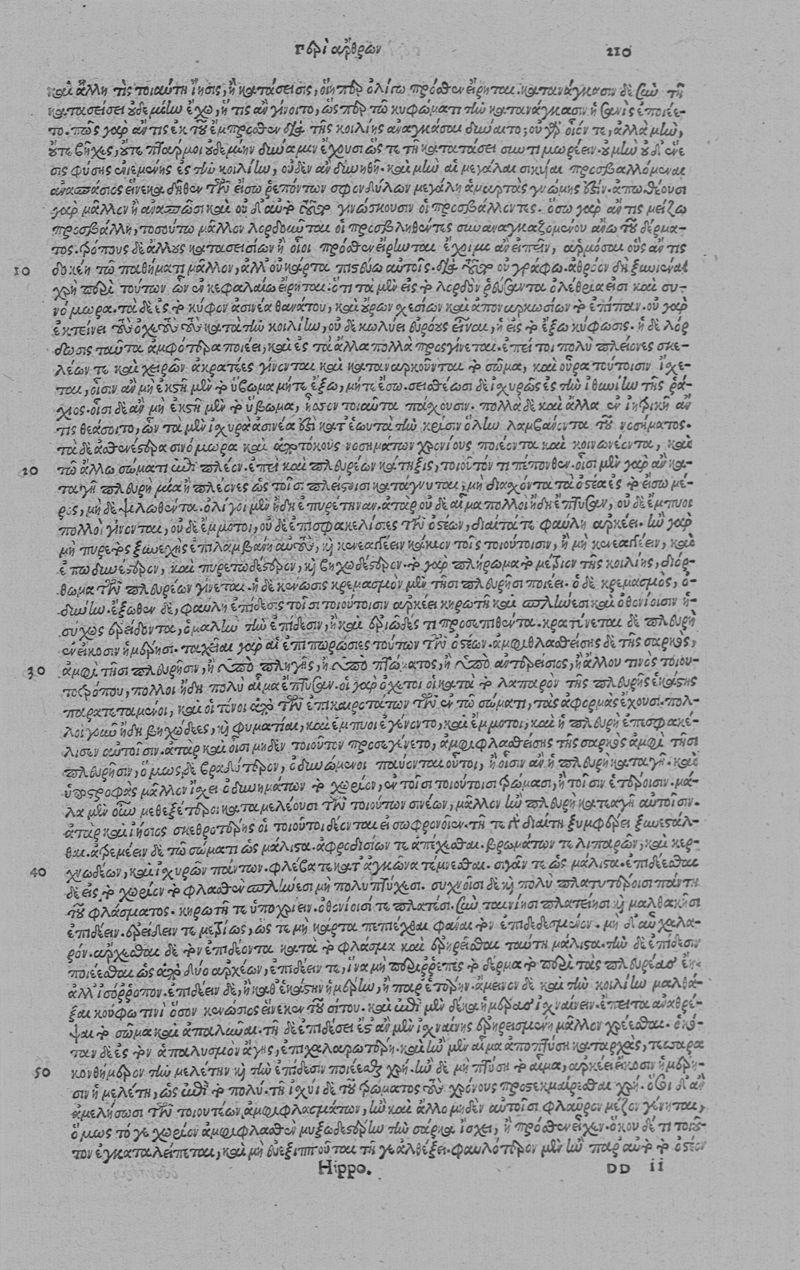 Περὶ ἄρθρων 210
καὶ ἄλλη τὶς τοιαύτη ἴησις, ἢ κατάσεισις, οἵη περ ὀλίγω πρόσθεν εἴρηται. κατανάγκασιν δὲ σὺν τῆ
κατασείσει οὐδεμίαν ἔχω, ἥ τις ἂν γένοιτο, ὥσπερ τῶ κυφώματι τὴν κατανάγκασιν ἡ σανὶς ἐποίεε-
το. πῶς γὰρ ἄν τις ἐκ τοῦ ἔμπροσθεν διὰ τῆς κοιλίης ἀναγκάσαι δύναιτο; οὐ γὰρ οἷόν τε, ἀλλὰ μὴν,
οὔτε βῆχες, οὔτε πταρμοὶ οὐδεμίην δύναμιν ἔχουσιν ὥς τε τῆ κατατάσει συντιμωρέειν. οὐ μὴν οὐδ' ἔνε
σις φύσης ἐνιεμένης ἐς τὴν κοιλίην, οὐδὲν ἂν δυνηθῆ. καὶ μὴν αἱ μεγάλαι σικύαι προσβαλλόμεναι
ἀνασπάσιος εἵνεκα δῆθεν τῶν εἴσω ῥεπόντων σφονδύλων μεγάλη ἁμαρτὰς γνώμης ἐστίν. ἀπωθέουσι
γὰρ μᾶλλον ἢ ἀνασπῶσι καὶ οὐδ' αὐτὸ τοῦτο γινώσκουσιν οἱ προσβάλλοντες. ὅσω γὰρ ἄν τις μείζω
προσβάλλη, τοσούτω μᾶλλον λορδοῦνται οἱ προσβληθέντες συναναγκαζομένου ἄνω τοῦ δέρμα-
τος. τρόπους δὲ ἄλλους κατασεισίων ἢ οἷοι πρόσθεν εἴρηνται ἔχοιμι ἂν εἰπεῖν, ἁρμόσαι οὓς ἄν τις
10 δοκέη τῶ παθήματι μᾶλλον, ἀλλ' οὐ κάρτα πιστεύω αὐτοῖς. διὰ τοῦτο οὐ γράφω. ἀθρόον δὴ ξυνιέναι
χρὴ περὶ τούτων ὧν ἐν κεφαλαίω εἴρηται. ὅτι τὰ μὲν εἰς τὸ λορδὸν ῥέψαντα ὀλέθριά εἰσι καὶ σι-
νόμωρα. τὰ δὲ ἐς τὸ κύφον ἀσινέα θανάτου, καὶ οὔρων σχεσίων καὶ ἀποναρκωσίων τὸ ἐπίπαν. οὐ γὰρ
ἐκτείνει τοὺς ὀχετοὺς τοὺς κατὰ τὴν κοιλίην, οὐδὲ κωλύει εὐρόους εἶναι, ἡ εἰς τὸ ἔξω κύφωσις. ἡ δὲ λόρ
δωσις ταῦτα ἀμφότερα ποιέει, καὶ ἐς τὰ ἄλλα πολλὰ προσγίνεται. ἐπεί τοι πολὺ πλείονες σκε-
λέων τε καὶ χειρῶν ἀκρατέες γίνονται καὶ καταναρκοῦνται τὸ σῶμα, καὶ οὖρα τούτοισιν ἴσχε-
ται, οἷσιν ἂν μὴ ἐκστῆ μὲν τὸ ὕβωμα μήτε ἔξω, μήτε ἔσω. σεισθέωσι δὲ ἰσχυρῶς ἐς τὴν ἰθυωρίην τῆς ῥά-
χιος. οἷσι δὲ ἂν μὴ ἐκστῆ μὲν τὸ ὕβωμα, ἧσσον τοιαῦτα πάσχουσιν. πολλὰ δὲ καὶ ἄλλα ἐν ἰητρικῆ ἄν
τις θεάσοιτο, ὧν τὰ μὲν ἰσχυρὰ ἀσινέα ἐστὶ κατ' ἑωυτὰ τὴν κρίσιν ὅλην λαμβάνοντα τοῦ νοσήματος.
τὰ δὲ ἀσθενέστερα σινόμωρα καὶ ἀποτόκους νοσημάτων χρονίους ποιέοντα καὶ κοινωνέοντα, καὶ
20 τῶ ἄλλω σώματι ἐπὶ πλέον. ἐπεὶ καὶ πλευρέων κάτηξις, τοιοῦτόν τι πέπονθεν. οἷσι μὲν γὰρ ἂν κα-
ταγῆ πλευρὴ μία ἢ πλέονες ὡς τοῖσι πλείστοισι κατάγνυται, μὴ διασχόντα τὰ ὀστέα ἐς τὸ εἴσω μέ-
ρος, μηδὲ ψιλωθέντα. ὀλίγοι μὲν ἤδη ἐπυρέτηναν. ἀτὰρ οὐδὲ αἷμα πολλοὶ ἤδη ἔπτυσαν, οὐδὲ ἔμπυοι
πολλοὶ γίνονται, οὐδὲ ἔμμοτοι, οὐδὲ ἐπισφακελίσιες τῶν ὀστέων, δίαιτά τε φαύλη ἀρκέει. ἢν γὰρ
μὴ πυρετὸς ξυνεχὴς ἐπιλαμβάνη αὐτοὺς, καὶ κενεαγγέειν κάκιον τοῖς τοιούτοισιν, ἢ μὴ κενεαγγέειν, καὶ
ἐπωδυνέστερον, καὶ πυρετωδέστερον, καὶ βηχωδέστερον. τὸ γὰρ πλήρωμα τὸ μέτριον τῆς κοιλίης, διόρ-
θωμα τῶν πλευρέων γίνεται. ἡ δὲ κένωσις κρεμασμὸν μὲν τῆσι πλευρῆσι ποιέει. ὁ δὲ κρεμασμὸς, ὀ-
δύνην. ἔξωθεν δὲ, φαύλη ἐπίδεσις τοῖσι τοιούτοισιν ἀρκέει κηρωτῆ καὶ σπλήνεσι καὶ ὀθονίοισιν ἡ-
σύχως ἐρείδοντα, ὁμαλὴν τὴν ἐπίδεσιν, ἢ καὶ ἐριῶδές τι προσεπιθέντα. κρατύνεται δὲ πλευρὴ
ἐν εἴκοσιν ἡμέρησι. ταχεῖαι γὰρ αἱ ἐπιπωρώσιες τούτων τῶν ὀστέων. ἀμφιθλασθείσης δὲ τῆς σαρκὸς,
30 ἀμφὶ τῆσι πλευρῆσιν, ἢ ὑπὸ πληγῆς, ἢ ὑπὸ πτώματος, ἢ ὑπὸ ἀντερείσιος, ἢ ἄλλου τινὸς τοιου-
τοτρόπου, πολλοὶ ἤδη πολὺ αἷμα ἔπτυσαν. οἱ γὰρ ὀχετοὶ οἱ κατὰ τὸ λαπαρὸν τῆς πλευρῆς ἑκάστης
παρατεταμένοι, καὶ οἱ τόνοι ἀπὸ τῶν ἐπικαιροτάτων τῶν ἐν τῶ σώματι, τὰς ἀφορμὰς ἔχουσι. πολ-
λοὶ γοῦν ἤδη βηχώδεες, καὶ φυματίαι, καὶ ἔμπυοι ἐγένοντο, καὶ ἔμμοτοι, καὶ ἡ πλευρὴ ἐπεσφακέ-
λισεν αὐτοῖσιν. ἀτὰρ καὶ οἷσι μηδὲν τοιοῦτον προσεγένετο, ἀμφιφλασθείσης τῆς σαρκὸς ἀμφὶ τῆσι
πλευρῆσιν, ὅμως δὲ βραδύτερον, ὀδυνώμενοι παύονται οὗτοι, ἢ οἷσιν ἂν ἡ πλευρὴ καταγῆ. καὶ
ὑποστροφὰς μᾶλλον ἴσχει ὀδυνημάτων τὸ χωρίον, ἐν τοῖσι τοιούτοισι τρώμασι, ἢ τοῖσιν ἑτέροισιν. μά-
λα μὲν οὖν μεθεξέτεροι καταμελέουσι τῶν τοιούτων σινέων, μᾶλλον ἢν πλευρὴ καταγῆ αὐτοῖσιν.
ἀτὰρ καὶ ἰήσιος σκεθροτέρης οἱ τοιοῦτοι δέονται εἰ σωφρονοῖεν. τῆ τε γὰρ διαίτη ξυμφέρει ξυνεστάλ-
θαι. ἀτρεμέειν δὲ τῶ σώματι ὡς μάλιστα. ἀφροδισίων τε ἀπέχεσθαι. βρωμάτων τε λιπαρῶν, καὶ κερ-
40 χνωδέων, καὶ ἰσχυρῶν πάντων. φλέβα τε κατ' ἀγκῶνα τέμνεσθαι. σιγᾶν τε ὡς μάλιστα. ἐπιδέεσθαι
δὲ εἰς τὸ χωρίον τὸ φλασθὲν σπλήνεσι μὴ πολυπτύχεσι. συχνοῖσι δὲ καὶ πολὺ πλατυτέροισι πάντη
τοῦ φλάσματος. κηρωτῆ τε ὑποχρίειν. ὀθονίοισί τε πλατέσι. σὺν ταινίησι πλατείησι καὶ μαλθακῆσι
ἐπιδέειν. ἐρείδειν τε μετρίως, ὥς τε μὴ κάρτα πεπιέχθαι φάναι τὸν ἐπιδεδεμένον. μὴ δ' αὖ χαλα-
ρόν. ἄρχεσθαι δὲ τὸν ἐπιδέοντα κατὰ τὸ φλάσμα καὶ ἐρηρεῖσθαι ταύτη μάλιστα. τὴν δὲ ἐπίδεσιν
ποιέεσθαι ὡς ἀπὸ δύο ἀρχέων, ἐπιδέειν τε, ἵνα μὴ περιρρεπὲς τὸ δέρμα τὸ περὶ τὰς πλευρέας ἔη.
ἀλλ' ἰσόρροπον. ἐπιδέειν δὲ, ἢ καθ' ἑκάστην ἡμέρην, ἢ παρ' ἑτέρην. ἄμεινον δὲ καὶ τὴν κοιλίην μαλθά-
ξαι κούφω τινὶ ὅσον κενώσιος ἕνεκεν τοῦ σίτου. καὶ ἐπὶ μὲν δέκα ἡμέρας ἰσχναίνειν. ἔπειτα ἀναθρέ-
ψαι τὸ σῶμα καὶ ἁπαλῦναι. τῆ δὲ ἐπιδέσει ἐς ἂν μὲν ἰσχναίνης ἐρηρεισμένη μᾶλλον χρέεσθαι. ὁκό-
ταν δὲ ἐς τὸν ἁπαλυσμὸν ἄγης, ἐπιχαλαρωτέρη. καὶ ἢν μὲν αἷμα ἀποπτύση καταρχὰς, τεσσαρα
50 κονθήμερον τὴν μελέτην καὶ τὴν ἐπίδεσιν ποιέεσθαι χρή. ἢν δὲ μὴ πτύση τὸ αἷμα, ἀρκέει εἴκοσιν ἡμέρη-
σιν ἡ μελέτη, ὡς ἐπὶ τὸ πολύ. τῆ ἰσχύι δὲ τοῦ τρώματος τοὺς χρόνους προσεκμαίρεσθαι χρή. ὅσοι δ' ἂν
ἀμελήσωσι τῶν τοιουτέων ἀμφιφλασμάτων, ἢν καὶ ἄλλο μηδὲν αὐτοῖσι φλαῦρον μέζον γένηται,
ὅμως τό γε χωρίον ἀμφιφλασθὲν μυξωδεστέρην τὴν σάρκα ἴσχει, ἢ πρόσθεν εἶχεν. ὅκου δέ τι τοιοῦ-
τον ἐγκαταλείπεται, καὶ μὴ εὖ ἐξιποῦται τῆ γε ἀλθέξει. φαυλότερον μὲν ἢν παρ' αὐτὸ τὸ ὀστέον
Hippo. DD ii